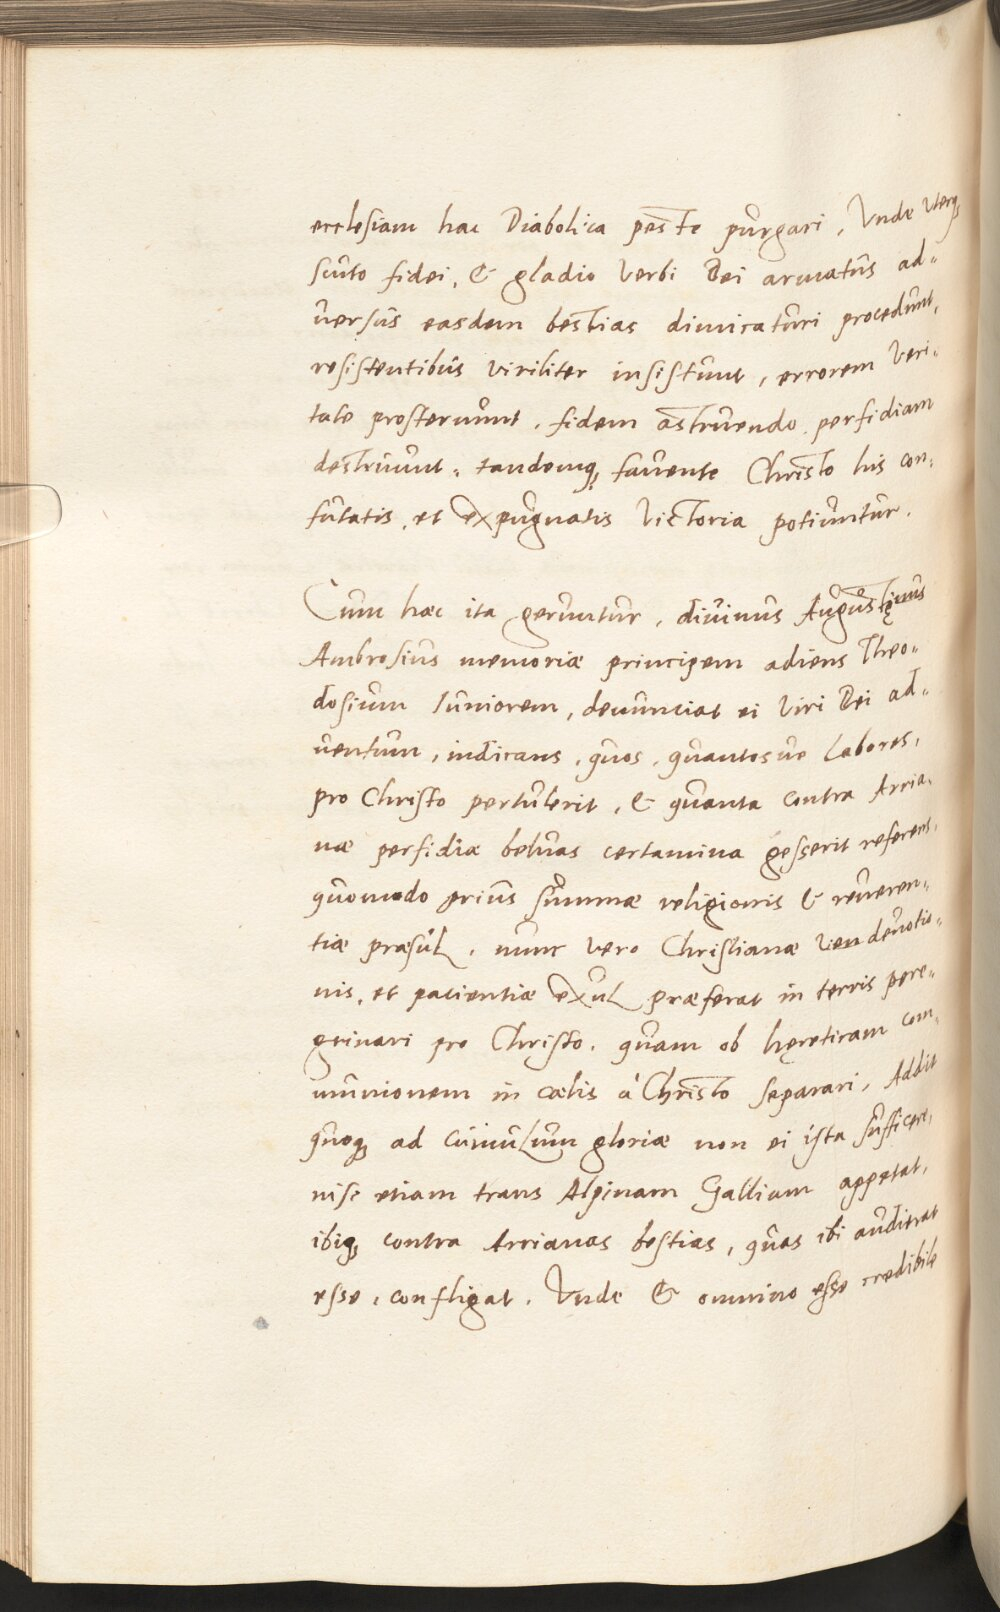 ecclesiam hac Diabolica peste purgari, Vnde uterq,
scuto fidei, & gladio Verbi Dei armatus ad-
uersus easdem bestias dimicaturi procedunt,
resistentibus viriliter insistunt, errorem Veri-
tate prosternunt, fidem astruendo perfidiam
destruunt, tandemq, fauente Christo his con-
futatis, et expugnatis Victoria potiuntur.
Cum haec ita geruntur, diuinus Augustinus
Ambrosius memoriæ principem adiens Theo-
dosium Iuniorem, denunciat ei Viri Dei ad-
uentum, indicans, quos, quantosue Labores,
pro Christo pertulerit, & quanta contra Arria-
næ perfidiæ beluas certamina gesserit referens,
quomodo prius summæ religionis & reueren-
tiæ præsul, nunc vero Christianæ deuotio-
nis, et pacientiæ exul præferat in terris pere-
grinari pro Christo, quam ob hęreticam com-
munionem in cælis à Christo separari, Addit
quoq, ad cumulum gloriæ non ei ista sufficere,
nisi etiam trans Alpinam Galliam appetat,
ibiq, contra Arrianas bestias, quas ibi audierat
esse, confligat. Vnde & omnino esse credibile